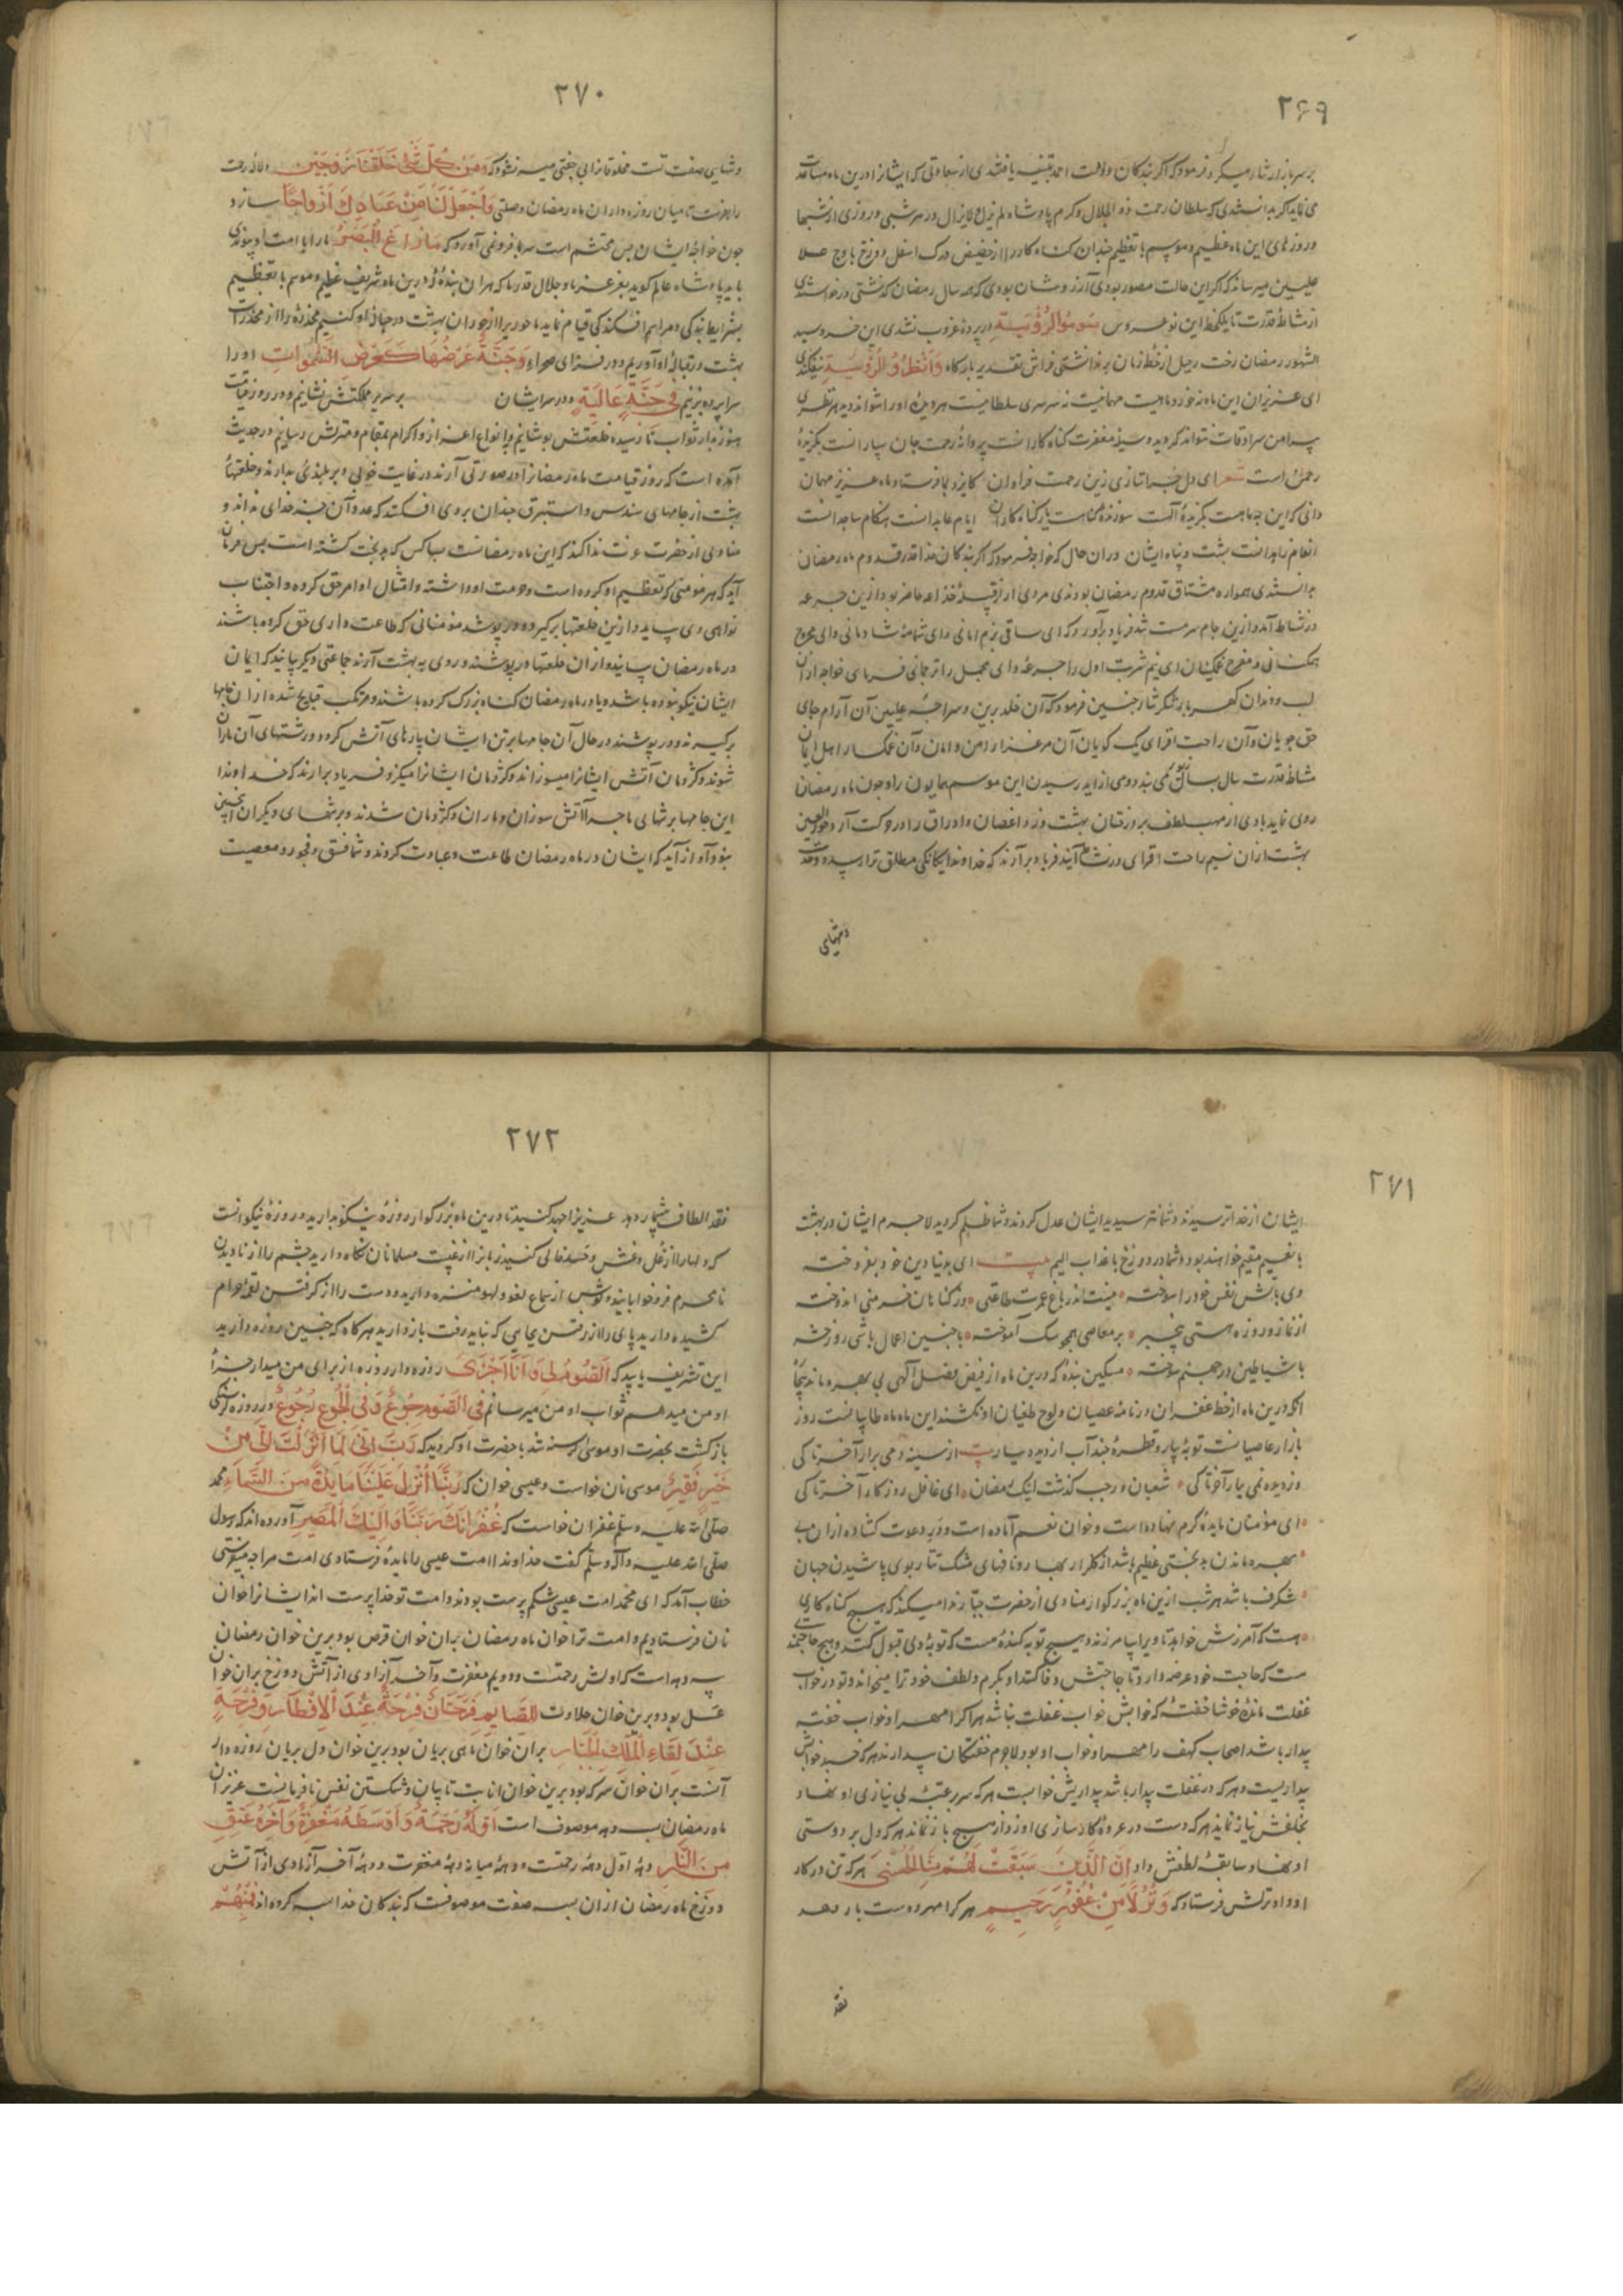 ۲۶۹
بر سر بازار نثار میکرد فرمود که اگر بندکان ولایت احمد یافتندی از سعادتی که ایشانرا درین ماه
می نماید اکر بدانستندی که سلطان رحمت ذو الجلال و کرم پادشاه لم یزل و لا یزال در هر شبی و روزی از شبها
و روزهای این ماه عظیم و موسم با تعظیم چندان کناه کار را از حضیض درک اسفل دوزخ باوج علا
علیین میرساند که اکر این حالت مصور بودی آرزوشان بودی که همه سال رمضان کذشتی
از مشاطه قدرت تا یکلحظه این نو عروس صُومُوا لِرُؤْيَتِهِ در پرده غروب نشدی این خسرو سید
الشهور رمضان رخت رحیل از خطه زمان برنداشتی فراش تقدیر بارکاه وَافْطِرُوا لِرُؤْيَتِهِ نیفکندی
ای عزیزان این ماه نه خرد ماهیست مهمانیست نه سرسری سلطانیست هر دیده او را نتواند دید هر نظری
پیرامن سرادقات نتواند کردید وسیله مغفرت کناه کارانست پروانه رحمت جان سپارانست بکزیده
رحمن است شعر ای دل چرا نتازی زین رحمت فراوان کایزد بما فرستاد ماه عزیز مهمان
دانی که این چه ماهست بکزیده آلهست سوزنده کناهست یار کناه کاران ایام عابدانست هنکام ساجدانست
انعام زاهدانست پشت و پناه ایشان در ان حال که خواجه فرمود که اکر بندکان خدا قدر قدوم ماه رمضان
بدانستندی همواره مشتاق قدوم رمضان بودندی مردی از قبیله خزاعه حاضر بود ازین جرعه
در نشاط آمد و ازین جام سرمست شد فریاد برآورد که ای ساقی بزم امانی و ای شمامه شادمانی
لب و دندان کهربار شکر نثار چنین فرمود که آن خلد برین و سراجه علیین آن آرام جای
حق جویان و آن راحت افزای یک کویان آن مرغزار امن و امان و آن غمکسار اهل ایمان
مشاطه قدرت سال بسال می بندد و می آراید رسیدن این موسم همایون را و چون ماه رمضان
روی نماید بادی از مهب لطف بر درختان بهشت وزد اغصان و اوراق را در حرکت آرد حور العین
بهشت ازان نسیم راحت افزای در نشاط آیند فریاد برآرند که خداوندا یکانکی مطلق ترا رسد و وحدت
و تنهایی
۲۷۰
و تنهایی صفت تست مخلوقانرا بی جفتی میسر نشود که وَمِنْ كُلِّ شَيْءٍ خَلَقْنَا زَوْجَيْنِ
را میان ما و میان روزه داران ماه رمضان وصلتی وَاجْعَلْ لَنَا مِنْ عِبَادِكَ أَزْوَاجًا سازد
چون خواجه ایشان بس محتشم است سر بما فرو نمی آورد که مَا زَاغَ الْبَصَرُ ما را با امت او پیوندی
باید پادشاه عالم کوید بعز عز ما و جلال قدر ما که هر ان بنده که درین ماه شریف عظیم و موسم با تعظیم
بشرایط بندکی و مراسم افکندکی قیام نماید ما حور را از حوران بهشت در حباله او کنیم
بهشت در قباله او آوریم و در فراز ای صحراء وَجَنَّةٍ عَرْضُهَا كَعَرْضِ السَّمٰوَاتِ او را
سراپرده بزنیم فِي جَنَّةٍ عَالِيَةٍ و در سرا ایشان بر سریر مملکتش نشانیم و در روز قیامت
هنوز بدار ثواب نارسیده خلعتش پوشانیم و بانواع اعزاز و اکرام بمقام و منزلش رسانیم در حدیث
آمده است که روز قیامت ماه رمضانرا در صورتی آرند در غایت خوبی و بر بلندی بدارند و خلعتها
بهشت از جامهای سندس و استبرق چندان بر وی افکنند که عدد آن جز خدای نداند و
منادی از حضرت عزت ندا کند که این ماه رمضانست بسا کس که بدبخت کشته است پس فرمان
آید که هر مومنی که تعظیم او کرده است و حرمت او داشته و امتثال اوامر حق کرده و اجتناب
نواهی وی بیاید و ازین خلعتها برکیرد و در پوشد مومنانی که طاعت داری حق کرده باشند
در ماه رمضان بیایند و ازان خلعتها در پوشند و روی به بهشت آرند جماعتی دیکر بیایند که ایمان
ایشان نیکو نبوده باشد و یا در ماه رمضان کناه بزرک کرده باشند و مرتکب قبایح شده ازان جامها
برکیرند و در پوشند در حال آن جامها برتن ایشان پارهای آتش کردد و رشتهای آن ماران
شوند و کژدمان آتش ایشانرا میسوزاند و کژدمان ایشانرا میکزد فریاد برآرند که خداوندا
این جامها بر تنهای ما چرا آتش سوزان و ماران و کژدمان شدند و بر تنهای دیکران چنین
نبود آواز آید که ایشان در ماه رمضان طاعت و عبادت کردند و شما فسق و فجور و معصیت
۲۷۱
ایشان از خدا ترسیدند و شما نترسیدید ایشان عدل کردند و شما ظلم کردید لاجرم ایشان در بهشت
با نعیم مقیم خواهند بود و شما در دوزخ با عذاب الیم بیت ای بدنیا دین خود بفروخته
وی بآتش نفس خود را سوخته نیست اندر باغ عمرت طاعتی وز کناهان خرمنی اندوخته
از نماز و روزه هستی بیخبر بر معاصی همچو سک آموخته با چنین اعمال باشی روز حشر
با شیاطین در جهنم سوخته مسکین بنده که درین ماه از فیض فضل آلهی بی بهره ماند
آنکه درین ماه از خط غفران در نامه عصیان و لوح طغیان او نکشند این ماه ماه طالبانست روز
بازار عاصیانست توبه بیار و قطره چند آب از دیده ببار بیت از سینه دمی برآر آخر تا کی
وز دیده نمی بیار آخر تا کی شعبان و رجب کذشت اینک رمضان ای غافل روزکار آخر تا کی
ای مؤمنان مایده کرم نهاده است و خوان نعم آماده است و در دعوت کشاده ازان بی
بهره ماندن بدبختی عظیم باشد از کلزار بهار و نافهای مشک تتار بوی پاشیدن جهان
شکرف باشد هر شب ازین ماه بزرکوار منادی از حضرت جبار ندا میکند که هیچ کناه کاری
هست که آمرزش خواهد تا ویرا بیامرزند و هیچ توبه کننده هست که توبه وی قبول کنند و هیچ حاجتمند
هست که حاجت خود عرضه دارد تا حاجتش روا کند او بکرم و لطف خود ترا میخواند و تو در خواب
غفلت مانده خوشا خفته که خوابش خواب غفلت نباشد هر آکرا مهر او خواب خفته
بیدار باشد اصحاب کهف را مهر او خواب او بود لاجرم خفتکان بیدارند هر که خسبد خوابش
بیداریست و هر که در غفلت بیدار باشد بیداریش خوابست هر که سر بر عتبه بی نیازی او نهاد و
بخلقش نیاز نماند هر که دست در عروه کارسازی او زد از هیچ باز نماند هر که دل بر دوستی
او نهاد سابقه لطفش داد إِنَّ الَّذِينَ سَبَقَتْ لَهُمْ مِنَّا الْحُسْنَى هر که تن در کار
او داد نزلش فرستاد که وَنُزُلًا مِنْ غَفُورٍ رَحِيمٍ هر کرا مهر دوست بار دهد
نقد
۲۷۲
نقد الطاف بیشمار دهد عزیزا جهد کنید تا درین ماه بزرکوار روزه نیکو بدارید و روزه نیکو آنست
که دلها را از غل و غش و حسد خالی کنید زبانرا از غیبت مسلمانان نکاه دارید چشم را از نادیدن
نامحرم فرو خوابانید و کوش از سماع لغو و لهو منزه دارید و دست را از کرفتن لقمه حرام
کشیده دارید پای را از رفتن بجایی که نباید رفت باز دارید هر کاه که چنین روزه دارید
این تشریف یابید که اَلصَّوْمُ لِي وَأَنَا أَجْزِي روزه دار روزه از برای من میدارد جزاء
او من میدهم ثواب او من میرسانم فِي الصَّوْمِ جُوعٌ وَفِي الْجُوعِ رُجُوعٌ در روزه کرسنکی
بازکشت بحضرت او موسی کرسنه شد با حضرت او کردید که رَبِّ إِنِّي لِمَا أَنْزَلْتَ إِلَيَّ مِنْ
خَيْرٍ فَقِيرٌ موسی نان خواست و عیسی خوان که رَبَّنَا أَنْزِلْ عَلَيْنَا مَائِدَةً مِنَ السَّمَاءِ محمد
صلی الله علیه وسلم غفران خواست که غُفْرَانَكَ رَبَّنَا وَإِلَيْكَ الْمَصِيرُ آورده اند که رسول
صلی الله علیه وآله وسلم کفت خداوندا امت عیسی را مایده فرستادی امت مرا چه میفرستی
خطاب آمد که ای محمد امت عیسی شکم پرست بودند و امت تو خدا پرست اند ایشانرا خوان
نان فرستادیم و امت ترا خوان ماه رمضان بران خوان قرص بود برین خوان رمضان
سه دهه است که اولش رحمتست و دویم مغفرت و آخر آزادی از آتش دوزخ بران خوان
عسل بود و برین خوان حلاوت لِلصَّائِمِ فَرْحَتَانِ فَرْحَةٌ عِنْدَ الْإِفْطَارِ وَفَرْحَةٌ
عِنْدَ لِقَاءِ الْمَلِكِ الْجَبَّارِ بران خوان ماهی بریان بود برین خوان دل بریان روزه دار
آنست بران خوان سرکه بود برین خوان انابت تایبان و شکستن نفس نافرمانست عزیزان
ماه رمضان بسه دهه موصوف است أَوَّلُهُ رَحْمَةٌ وَأَوْسَطُهُ مَغْفِرَةٌ وَآخِرُهُ عِتْقٌ
مِنَ النَّارِ دهه اول دهه رحمتست و دهه میانه دهه مغفرت و دهه آخر آزادی از آتش
دوزخ ماه رمضان ازان بسه صفت موصوفست که بندکان خدا سه کروه اند فَمِنْهُمْ